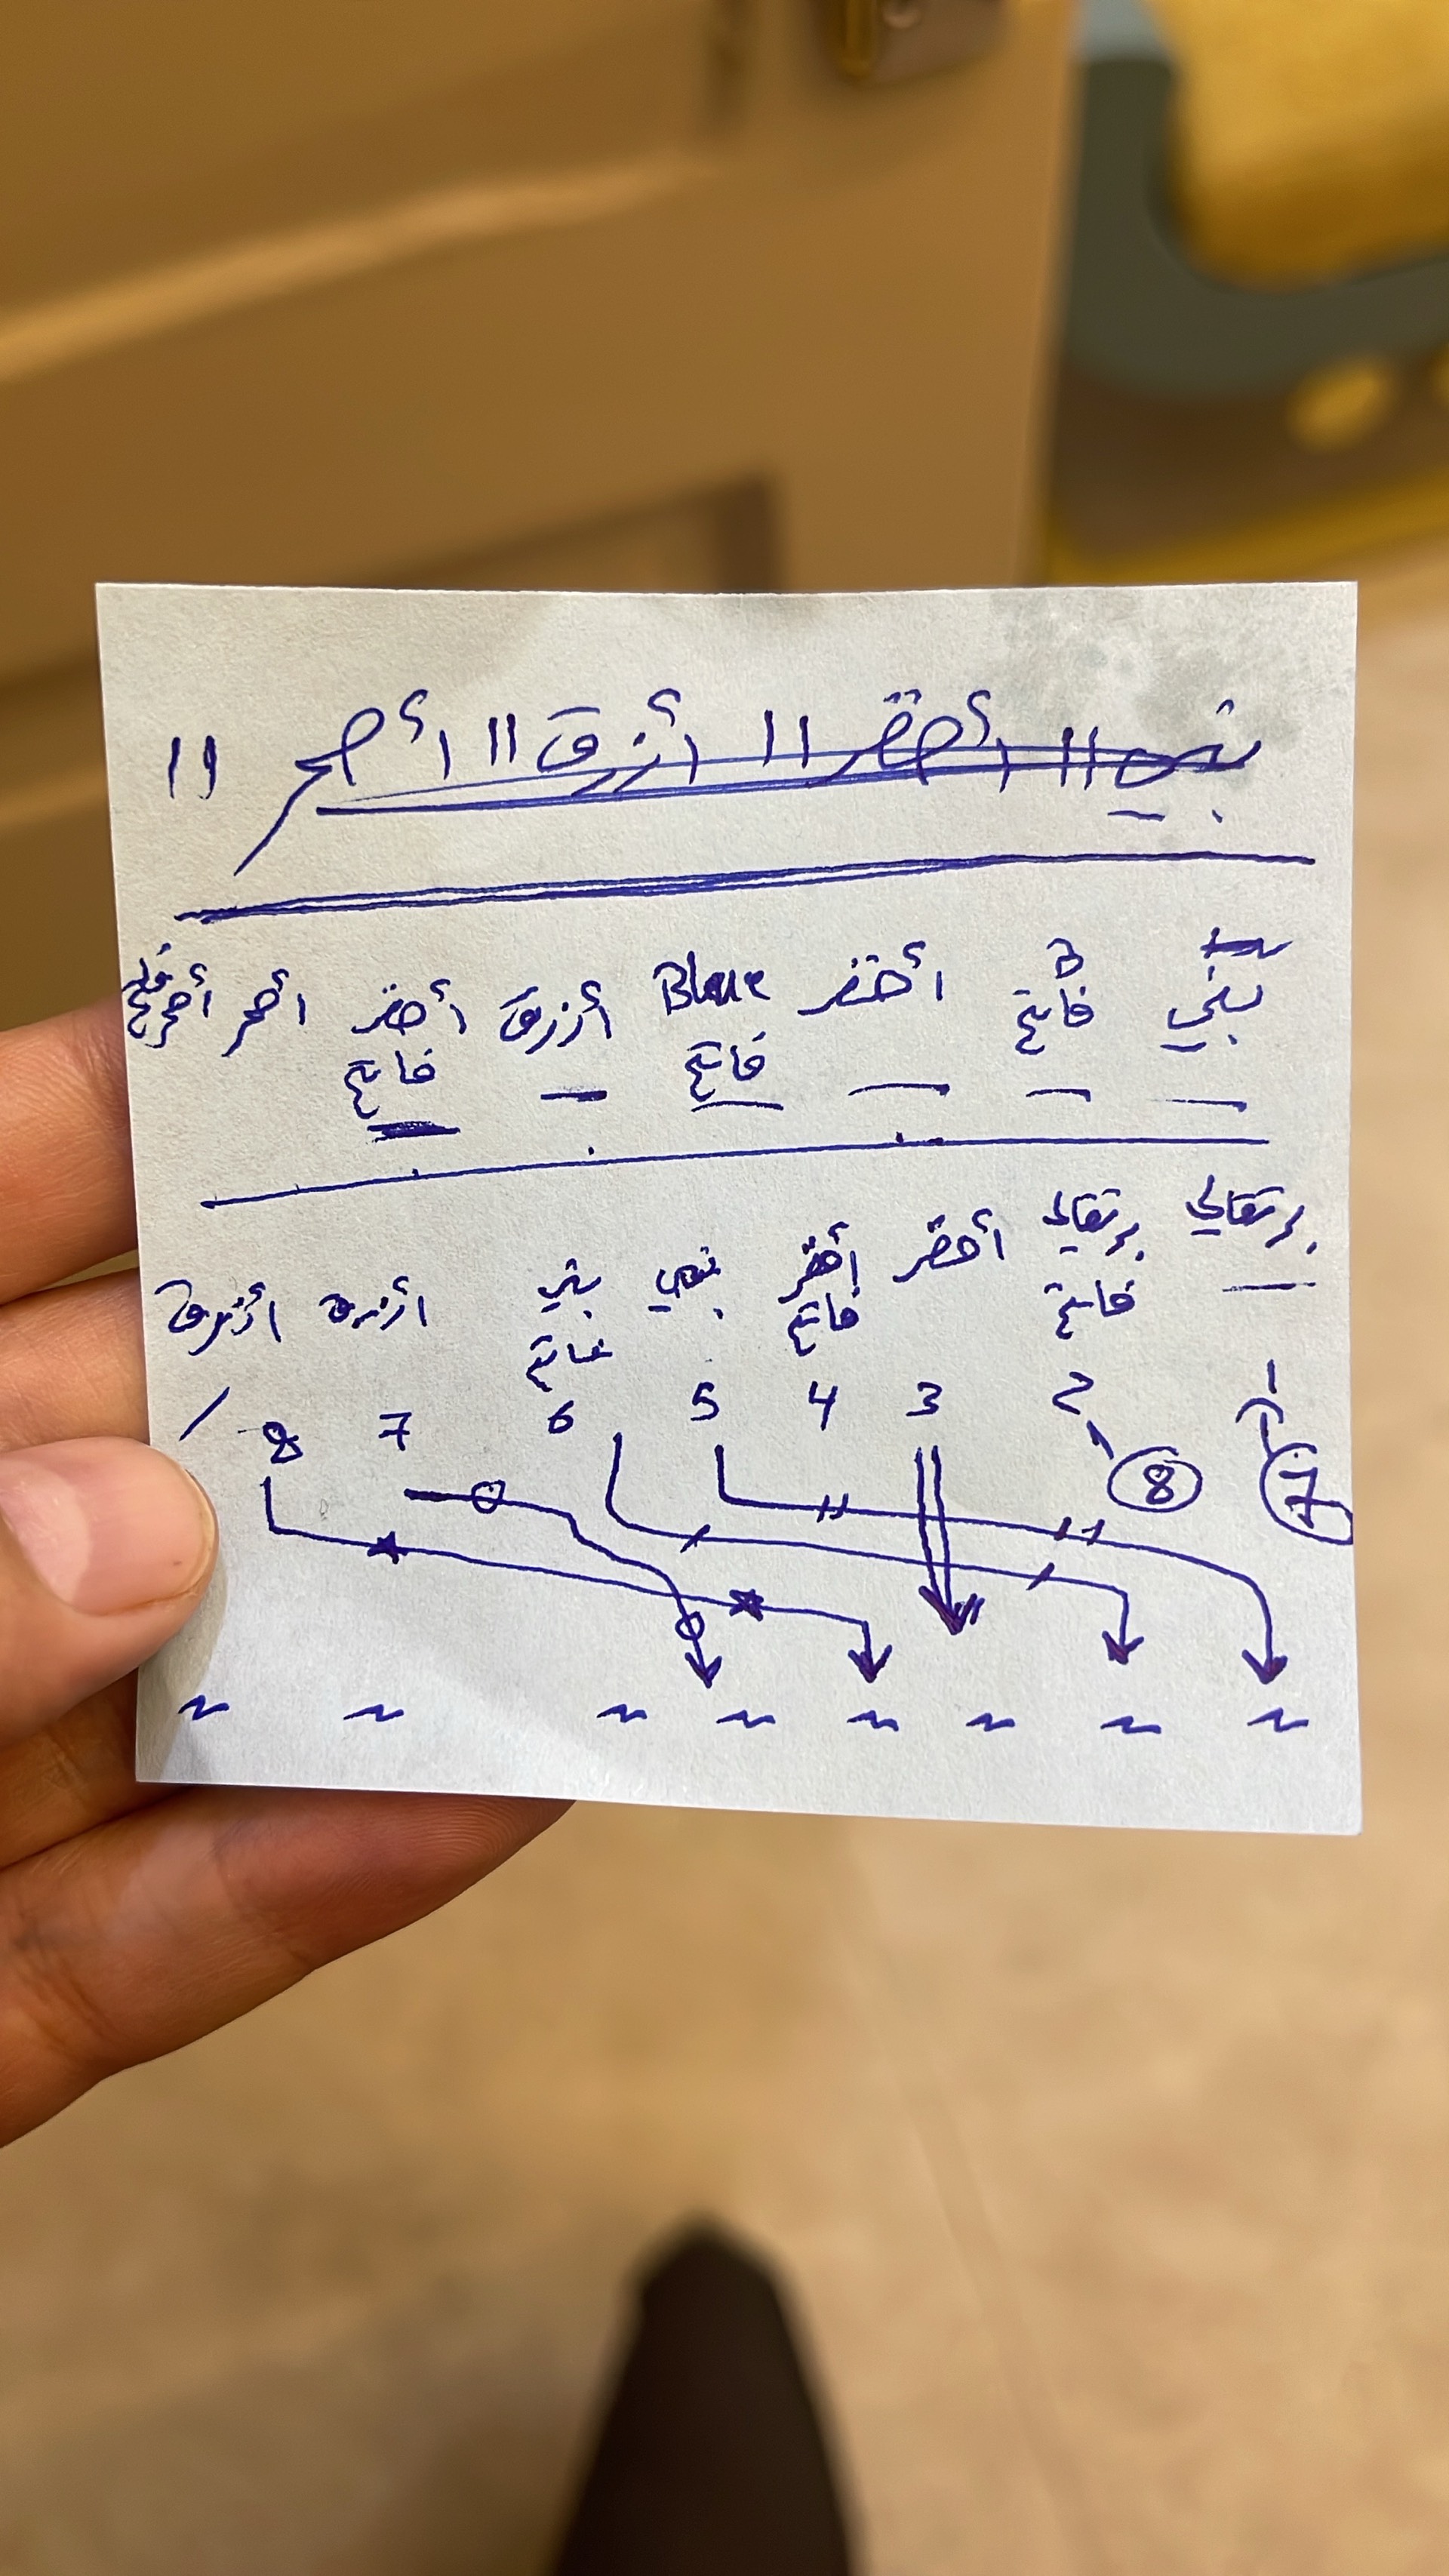 بني || أخضر || أزرق || أحمر ||
بني B فاتح أخضر Blue فاتح أزرق أخضر فاتح أحمر أحمر فاتح
برتقالي برتقالي فاتح أخضر أخضر فاتح بني بني فاتح أزرق أزرق
1 2 3 4 5 6 7 8
7 8